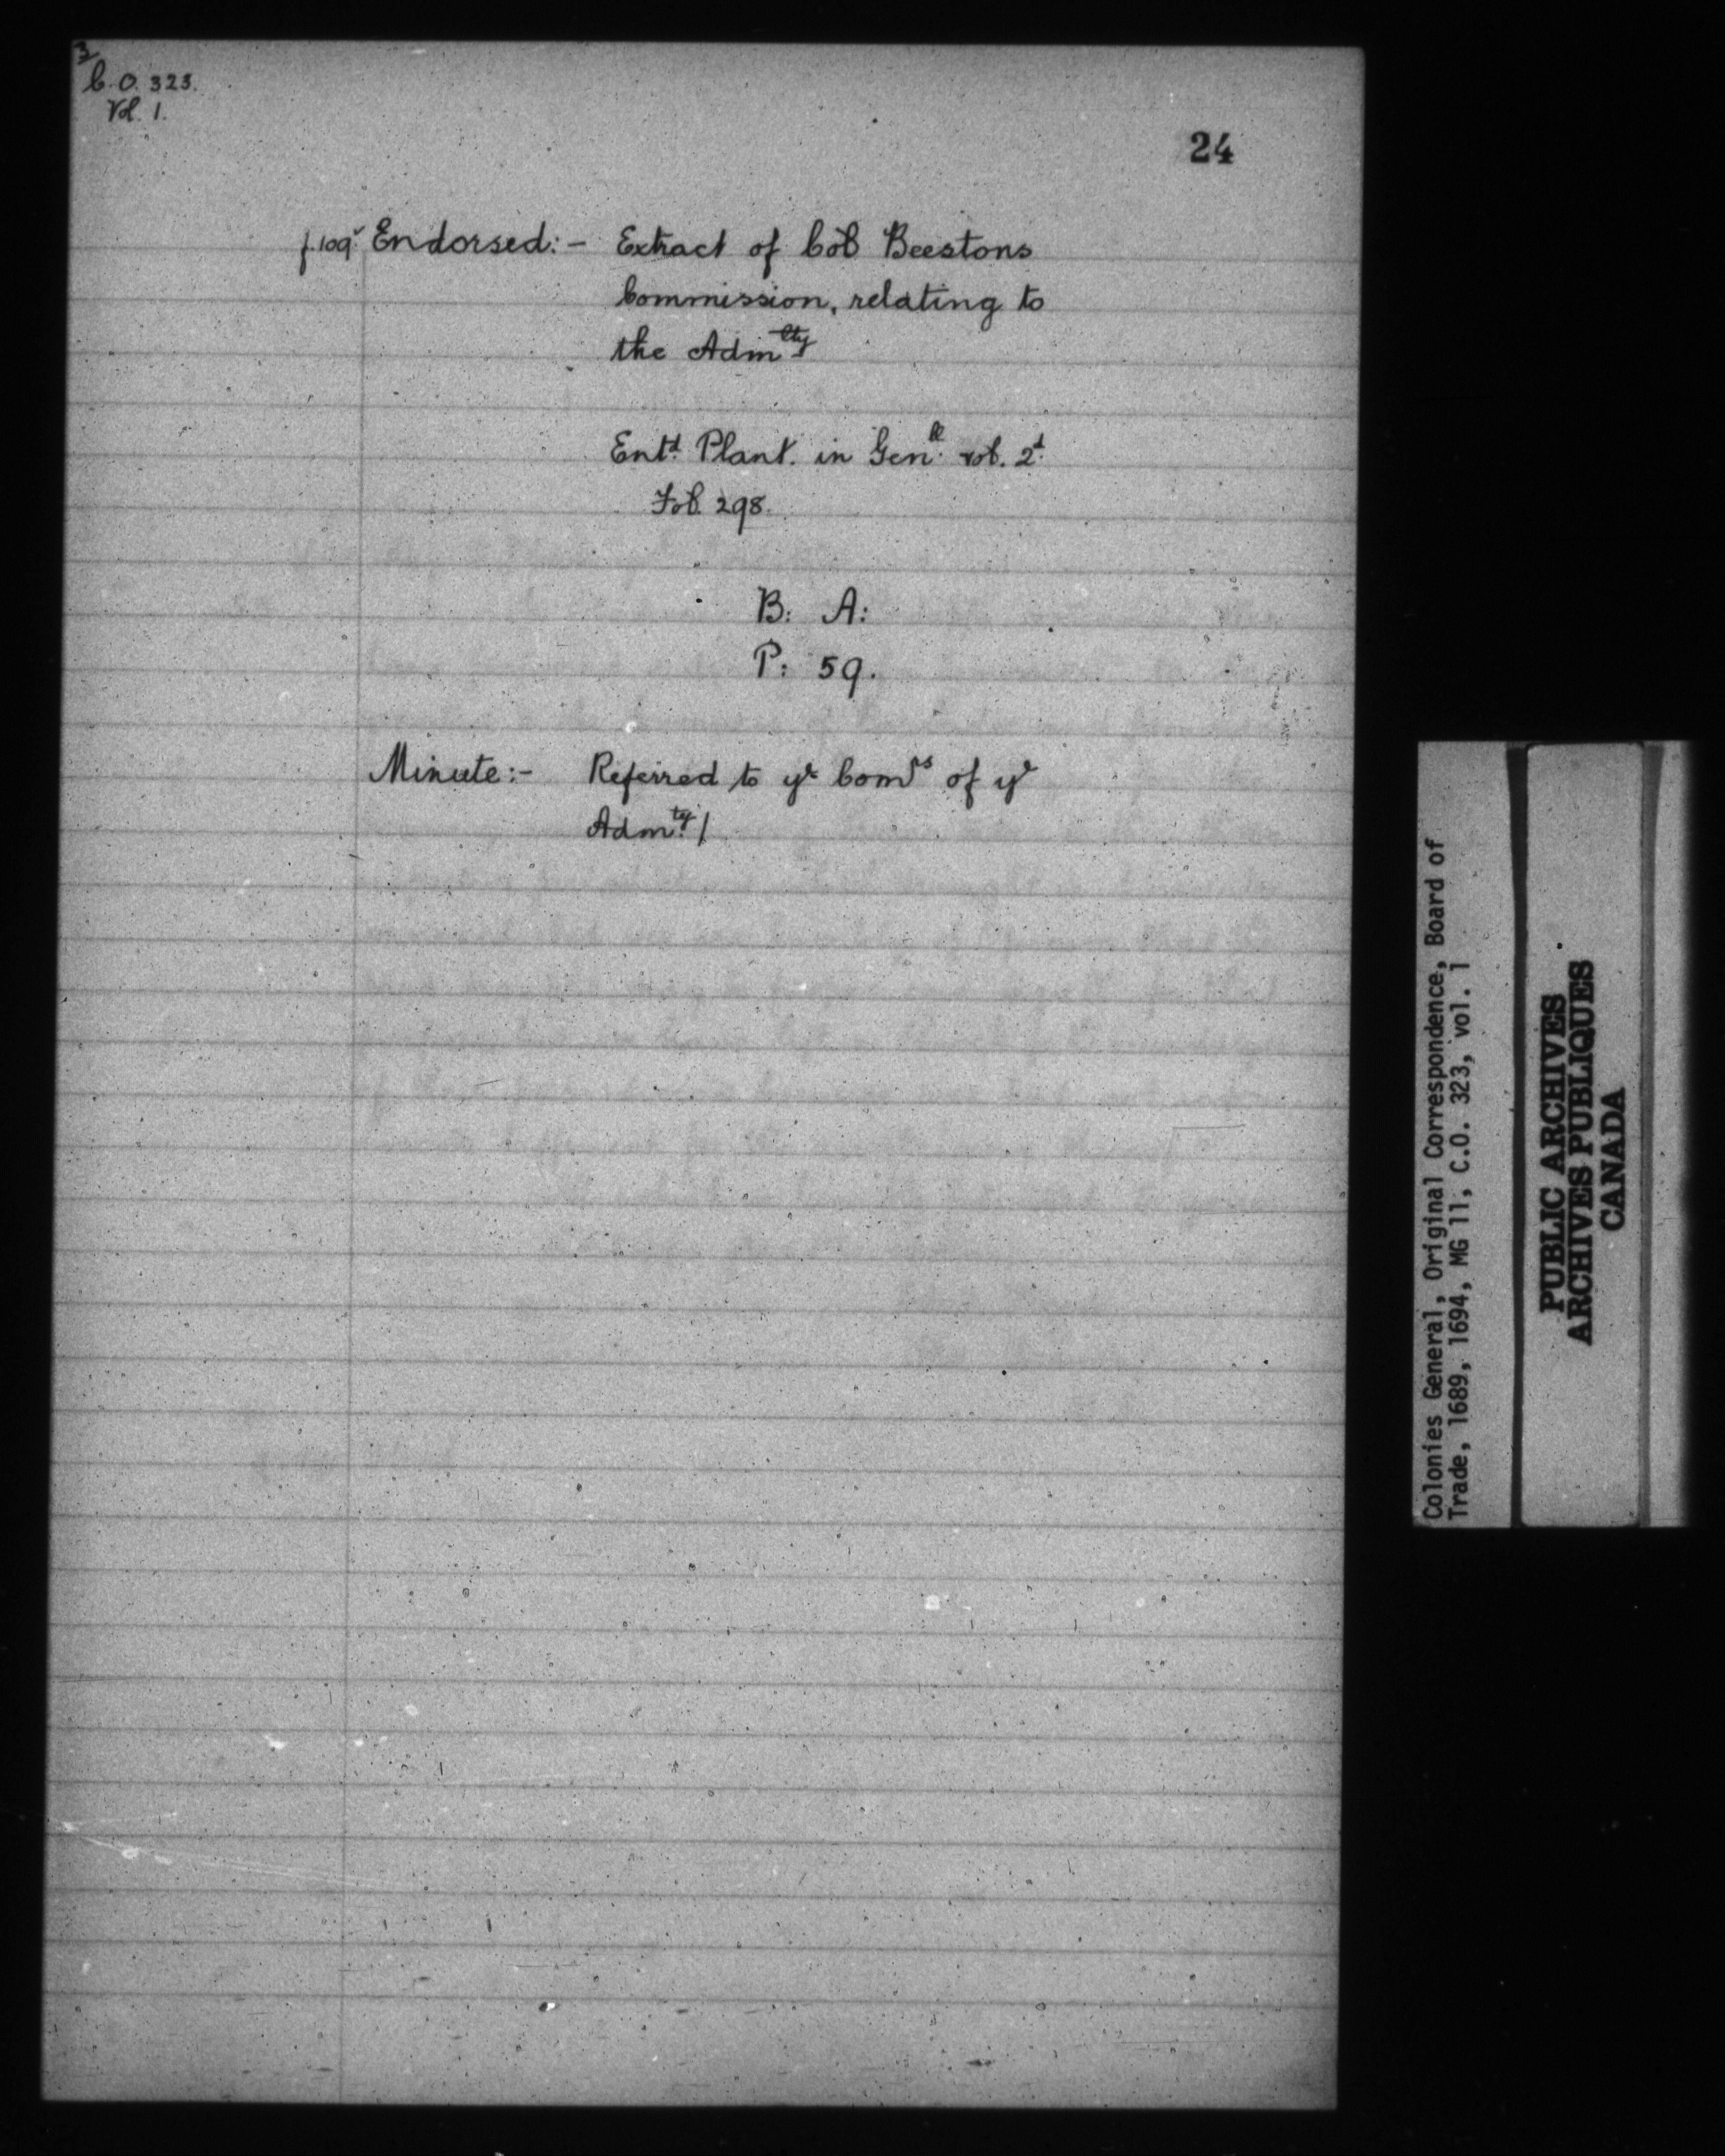 3
C.O. 323.
Vol. 1.
24
f.109v Endorsed:- Extract of Col Beestons
Commission, relating to
the Admlty
Entd. Plant. in Genll. vol. 2d.
Fol. 298.
B: A:
P: 59.
Minute:- Referred to ye Comrs of ye
Admty. /
Colonies General, Original Correspondence, Board of
Trade, 1689, 1694, MG 11, C.O. 323, vol. 1
PUBLIC ARCHIVES
ARCHIVES PUBLIQUES
CANADA